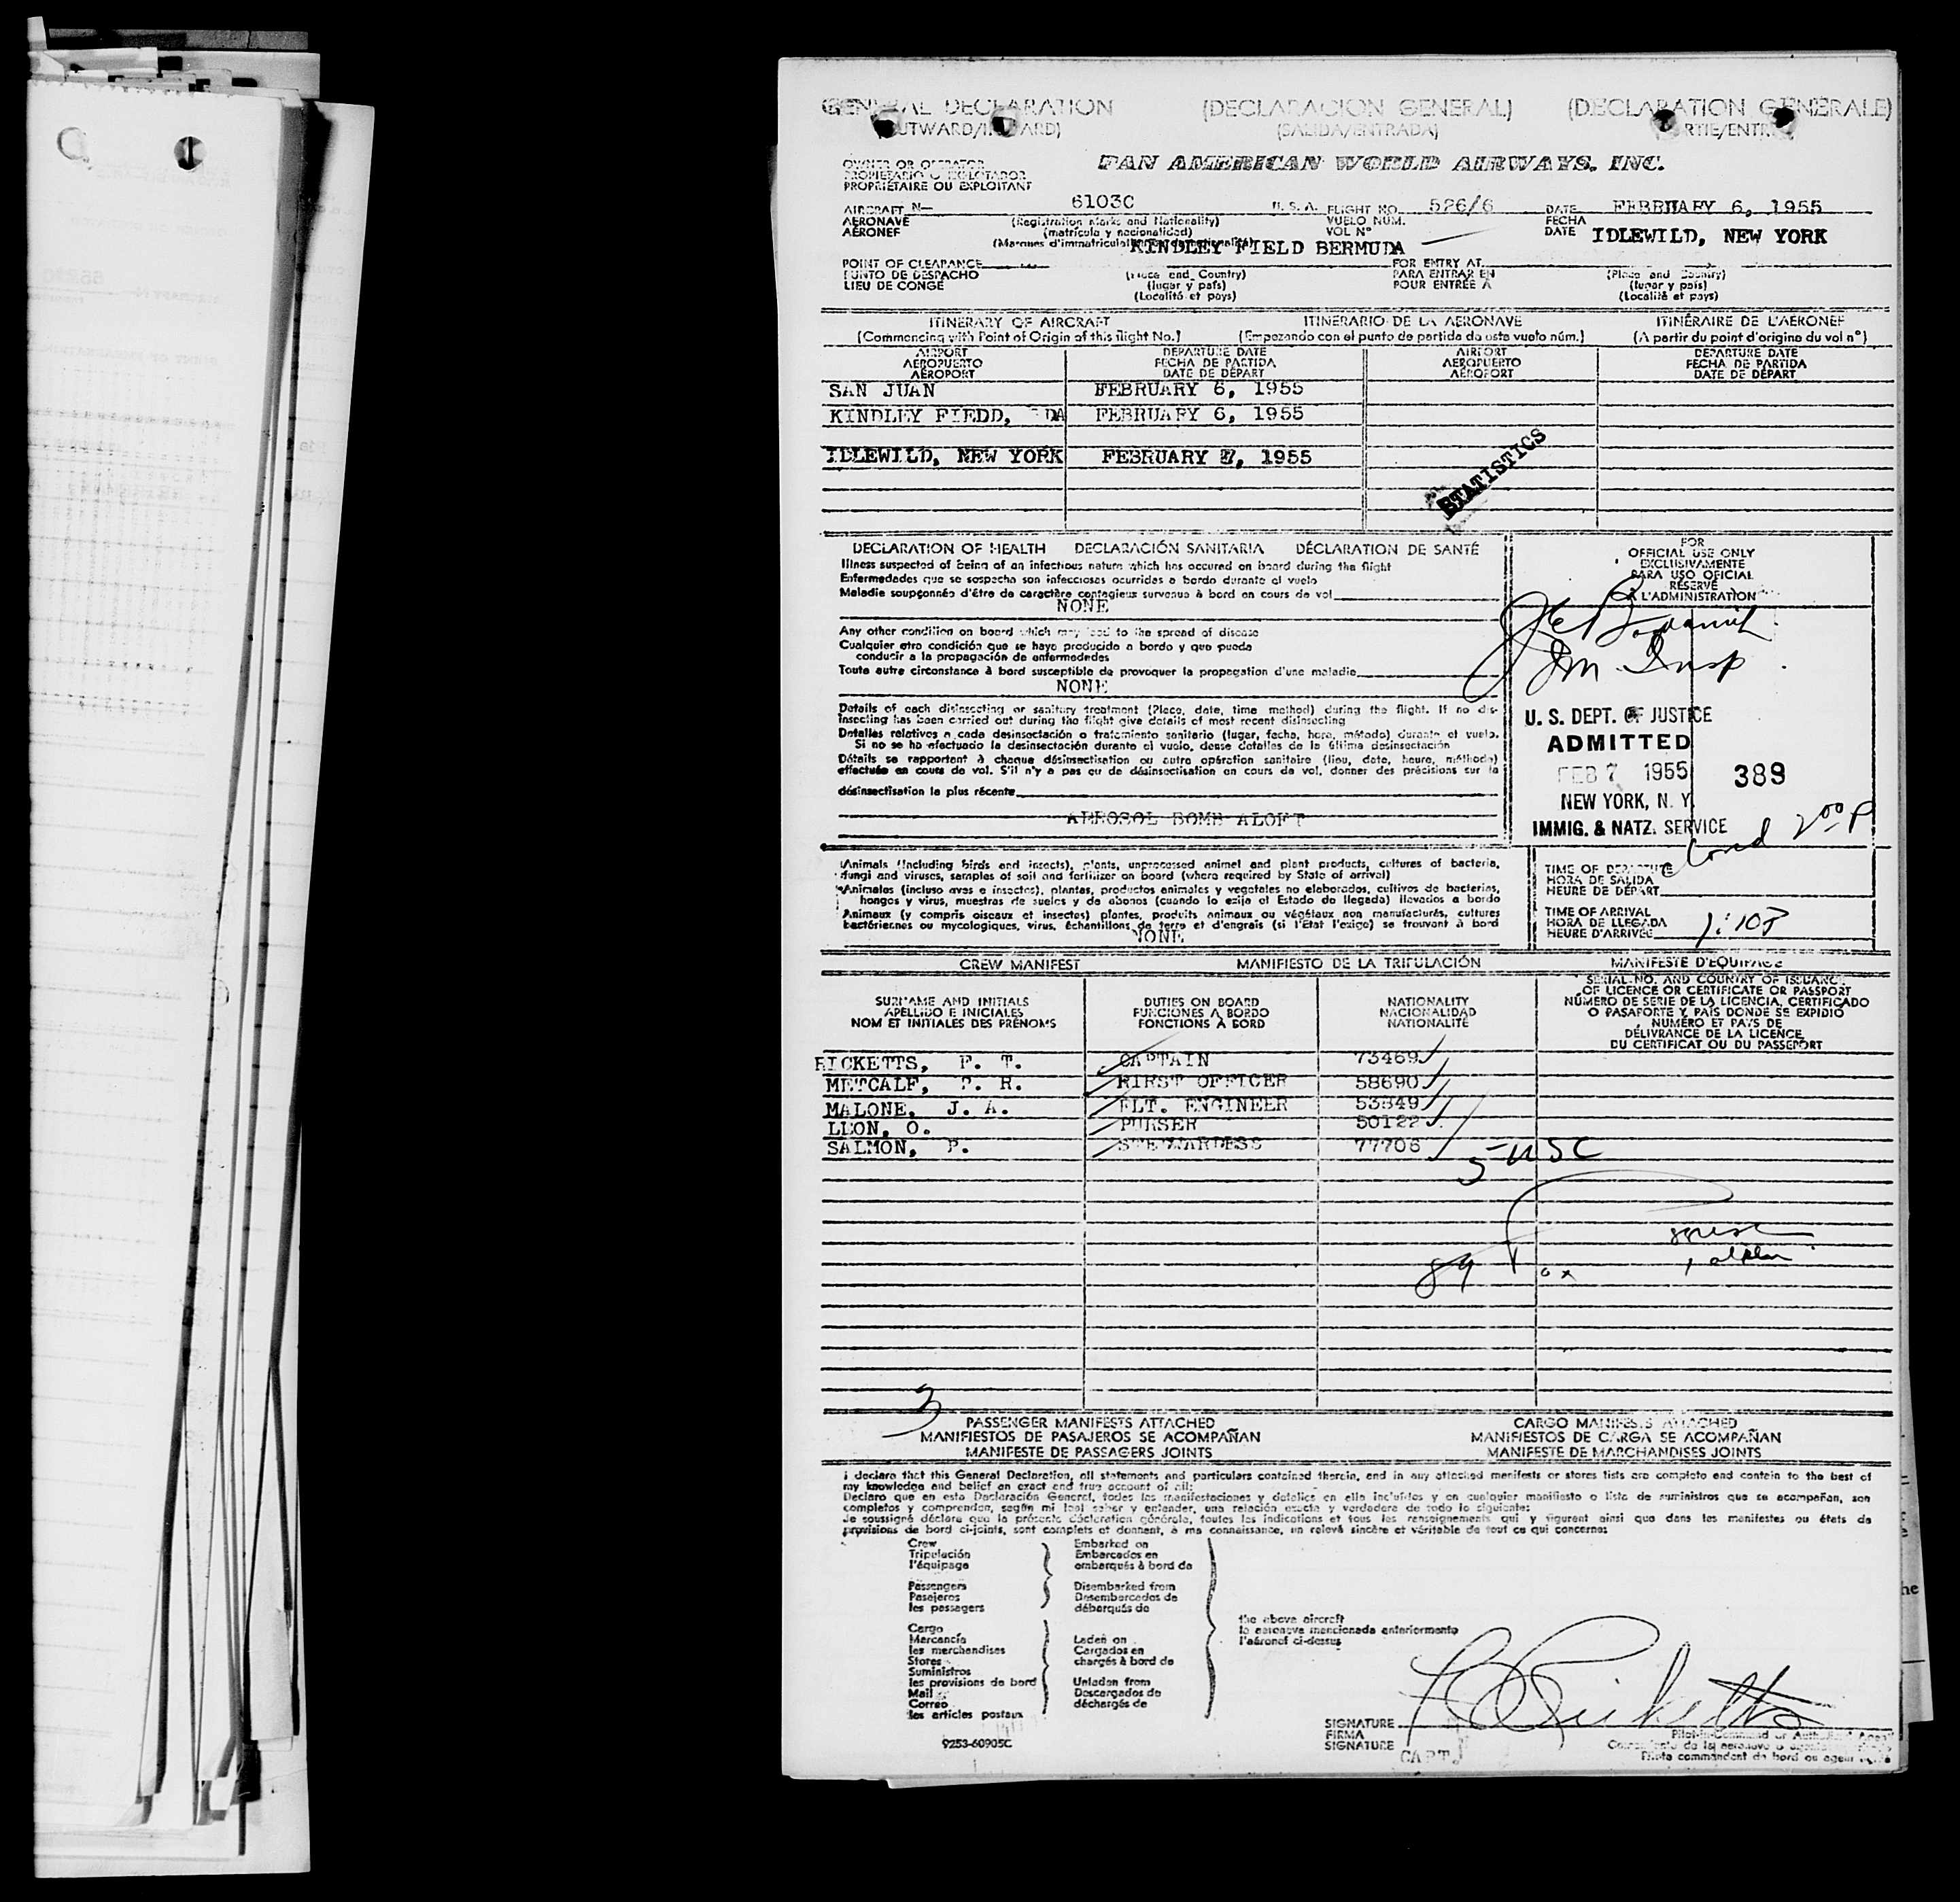 GENERAL DECLARATION (DECLARACION GENERAL) (DECLARATION GENERALE)
(OUTWARD/INWARD) (SALIDA/ENTRADA)
OWNER OR OPERATOR
PROPIETARIO O EXPLOTADOR
PROPRIÉTAIRE OU EXPLOITANT
PAN AMERICAN WORLD AIRWAYS, INC.
AIRCRAFT N— 6103C U. S. A. FLIGHT NO. 526/6 DATE FEBRUARY 6, 1955
AERONAVE (Registration Marks and Nationality) VUELO NUM. FECHA
AÉRONEF (matrícula y nacionalidad) VOL N° DATE IDLEWILD, NEW YORK
KINDLEY FIELD BERMUDA
POINT OF CLEARANCE FOR ENTRY AT
PUNTO DE DESPACHO (Place and Country) PARA ENTRAR EN (Place and Country)
LIEU DE CONGÉ (lugar y país) POUR ENTRÉE A (lugar y país)
(Localité et pays) (Localité et pays)
ITINERARY OF AIRCRAFT ITINERARIO DE LA AERONAVE ITINÉRAIRE DE L'AÉRONEF
(Commencing with Point of Origin of this flight No.) (Empezando con el punto de partida de este vuelo núm.) (A partir du point d'origine du vol n°)
AIRPORT DEPARTURE DATE AIRPORT DEPARTURE DATE
AEROPUERTO FECHA DE PARTIDA AEROPUERTO FECHA DE PARTIDA
AÉROPORT DATE DE DÉPART AÉROPORT DATE DE DÉPART
SAN JUAN FEBRUARY 6, 1955
KINDLEY FIEDD, DA FEBRUARY 6, 1955
IDLEWILD, NEW YORK FEBRUARY 7, 1955
STATISTICS
DECLARATION OF HEALTH DECLARACIÓN SANITARIA DÉCLARATION DE SANTÉ
Illness suspected of being of an infectious nature which has occured on board during the flight
Enfermedades que se sospecha son infecciosas ocurridas a bordo durante el vuelo
Maladie soupçonnés d'être de caractère contagieux survenue à bord en cours de vol
NONE
Any other condition on board which may lead to the spread of disease
Cualquier otra condición que se haya producido a bordo y que pueda
conducir a la propagación de enfermedades
Toute autre circonstance à bord susceptible de provoquer la propagation d'une maladie
NONE
Details of each disinsecting or sanitary treatment (Place, date, time method) during the flight. If no dis-
insecting has been carried out during the flight give details of most recent disinsecting
Detalles relativos a cada desinsectación o tratamiento sanitario (lugar, fecha, hora, método) durante el vuelo.
Si no se ha efectuado la desinsectación durante el vuelo, dense detalles de la última desinsectación
Détails se rapportant à chaque désinsectisation ou autre opération sanitaire (lieu, date, heure, méthode)
effectuée en cours de vol. S'il n'y a pas eu de désinsectisation en cours de vol, donner des précisions sur la
désinsectisation la plus récente
AEROSOL BOMB ALOFT
FOR
OFFICIAL USE ONLY
EXCLUSIVAMENTE
PARA USO OFICIAL
RÉSERVÉ
A L'ADMINISTRATION
Im Insp
U. S. DEPT. OF JUSTICE
ADMITTED
FEB 7 1955 389
NEW YORK, N. Y.
IMMIG. & NATZ. SERVICE
2 00 P
Animals (Including birds and insects), plants, unprocessed animal and plant products, cultures of bacteria,
fungi and viruses, samples of soil and fertilizer on board (where required by State of arrival)
Animales (incluso aves e insectos), plantas, productos animales y vegetales no elaborados, cultivos de bacterias,
hongos y virus, muestras de suelos y de abonos (cuando lo exija el Estado de llegada) llevados a bordo
Animaux (y compris oiseaux et insectes) plantes, produits animaux ou végétaux non manufacturés, cultures
bactériennes ou mycologiques, virus, échantillons de terre et d'engrais (si l'Etat l'exige) se trouvant à bord
NONE
TIME OF DEPARTURE
HORA DE SALIDA
HEURE DE DÉPART
TIME OF ARRIVAL
HORA DE LLEGADA
HEURE D'ARRIVÉE 1:10P
CREW MANIFEST MANIFIESTO DE LA TRIPULACIÓN MANIFESTE D'EQUIPAGE
SURNAME AND INITIALS DUTIES ON BOARD NATIONALITY
APELLIDO E INICIALES FUNCIONES A BORDO NACIONALIDAD
NOM ET INITIALES DES PRÉNOMS FONCTIONS À BORD NATIONALITÉ
SERIAL NO. AND COUNTRY OF ISSUANCE
OF LICENCE OR CERTIFICATE OR PASSPORT
NÚMERO DE SERIE DE LA LICENCIA, CERTIFICADO
O PASAPORTE Y PAIS DONDE SE EXPIDIO
NUMÉRO ET PAYS DE
DÉLIVRANCE DE LA LICENCE
DU CERTIFICAT OU DU PASSEPORT
RICKETTS, F. T. CAPTAIN 73469
METCALF, R. FIRST OFFICER 58690
MALONE, J. A. FLT. ENGINEER 53849
LEON, O. PURSER 50122
SALMON, P. STEWARDESS 77706
5-USC
89
3
PASSENGER MANIFESTS ATTACHED CARGO MANIFESTS ATTACHED
MANIFIESTOS DE PASAJEROS SE ACOMPAÑAN MANIFIESTOS DE CARGA SE ACOMPAÑAN
MANIFESTE DE PASSAGERS JOINTS MANIFESTE DE MARCHANDISES JOINTS
I declare that this General Declaration, all statements and particulars contained therein, and in any attached manifests or stores lists are complete and contain to the best of
my knowledge and belief an exact and true account of all:
Declaro que en esta Declaración General, todas las manifestaciones y detalles en ella incluídos y en cualquier manifiesto o lista de suministros que se acompañan, son
completos y comprenden, según mi leal saber y entender, una relación exacta y verdadera de todo lo siguiente:
Je soussigné déclare que la présente déclaration générale, toutes les indications et tous les renseignements qui y figurent ainsi que dans les manifestes ou états de
provisions de bord ci-joints, sont complets et donnent, à ma connaissance, un relevé sincère et véritable de tout ce qui concerne:
Crew Embarked on
Tripulación Embarcados en
l'équipage embarqués à bord de
Passengers Disembarked from
Pasajeros Desembarcados de
les passagers débarqués de
the above aircraft
la aeronave mencionada anteriormente
l'aéronef ci-dessus
Cargo
Mercancía Laden on
les merchandises Cargados en
Stores chargés à bord de
Suministros
les provisions de bord Unladen from
Mail Descargados de
Correo déchargés de
les articles postaux
Ricketts
SIGNATURE
FIRMA
SIGNATURE
CAPT.
Pilot-in-Command or Authorized Agent
Comandante de la aeronave o agente
Pilote commandant de bord ou agent
9253-60905C